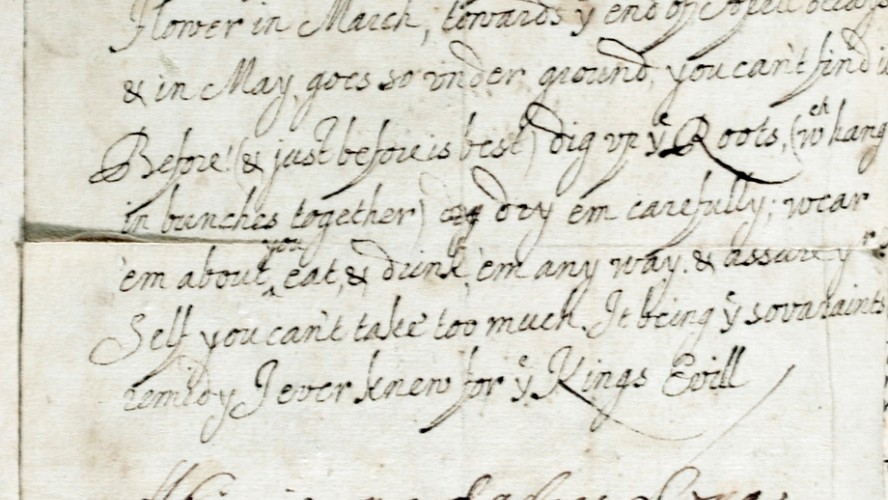 Flower in March, towards yͤ end of Aprill
& in May, goes so vnder ground, you can't find
Before! (& just before is best) dig vp yͤ Roots, (wᶜʰ hang
in bunches together) dry em carefully; wear
'em about you, eat, & drink 'em any way. & assure yʳ
Self you can't take too much. It being yͤ sovaraints
remidy I ever knew for yͤ Kings Evill